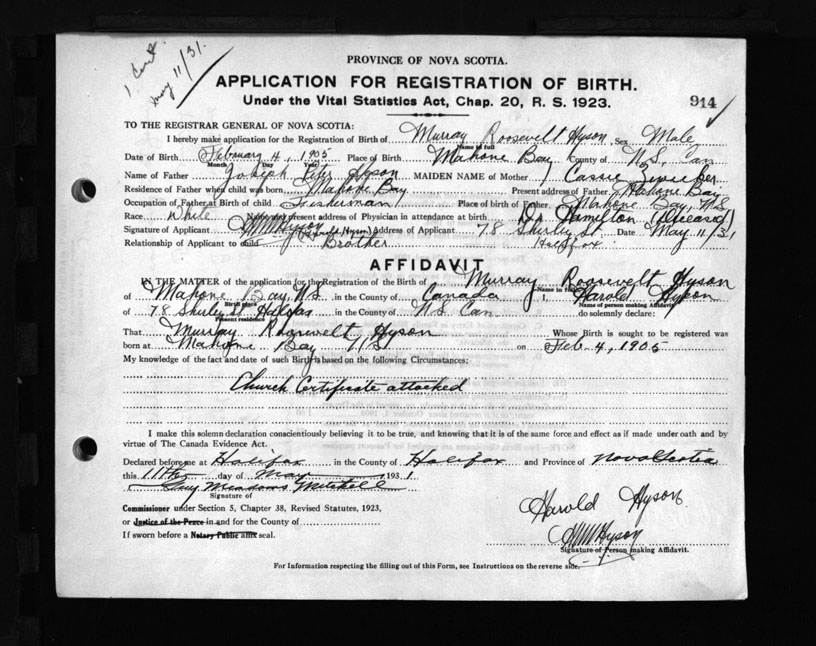 1 Cert.
May 11/31.
PROVINCE OF NOVA SCOTIA.
APPLICATION FOR REGISTRATION OF BIRTH.
Under the Vital Statistics Act, Chap. 20, R. S. 1923.
914
TO THE REGISTRAR GENERAL OF NOVA SCOTIA:
I hereby make application for the Registration of Birth of Murray Roosevelt Hyson Sex Male
Name in full
Date of Birth Febuary 4, 1905 Place of Birth Mahone Bay County of N.S, Can
Month Day Year
Name of Father Joseph Peter Hyson MAIDEN NAME of Mother Cassie
Residence of Father when child was born Mahone Bay Present address of Father Mahone Bay
Occupation of Father at Birth of child Fisherman Place of birth of Father Mahone Bay, N.S
Race White Name and present address of Physician in attendance at birth Dr Hamilton (Diceased)
Signature of Applicant Hyson (Harold Hyson) Address of Applicant 78 Shirley St. Date May 11/31
Relationship of Applicant to child Brother Halifax
AFFIDAVIT
IN THE MATTER of the application for the Registration of the Birth of Murray Roosevelt Hyson
Name in full
of Mahone Bay, N.S. in the County of Canada I, Harold Hyson
Birth place Name of person making Affidavit
of 78 Shirley St Halifax in the County of N.S. Can do solemnly declare:
Present residence
That Murray Roosevelt Hyson Whose Birth is sought to be registered was
born at Mahone Bay N S on Feb 4, 1905
My knowledge of the fact and date of such Birth is based on the following Circumstances:
Church Certificate attached
I make this solemn declaration conscientiously believing it to be true, and knowing that it is of the same force and effect as if made under oath and by
virtue of The Canada Evidence Act.
Declared before me at Halifax in the County of Halifax and Province of Nova Scotia
this 11th day of May 1931
Guy Meadows Mitchell
Signature of
Commissioner under Section 5, Chapter 38, Revised Statutes, 1923,
or Justice of the Peace in and for the County of
If sworn before a Notary Public affix seal.
Harold Hyson
Hyson
Signature of Person making Affidavit.
For Information respecting the filling out of this Form, see Instructions on the reverse side.